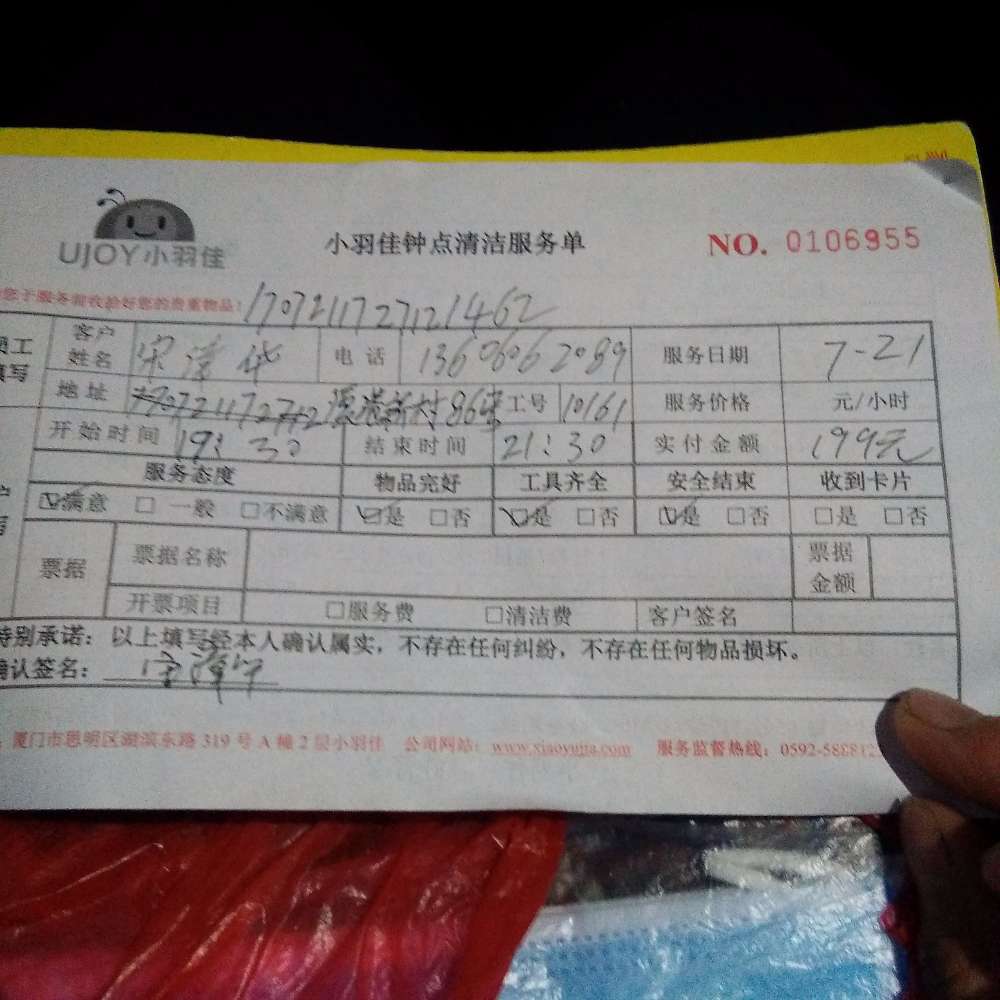 UJOY小羽佳
小羽佳钟点清洁服务单
NO. 0106955
您于服务前收拾好您的贵重物品!
员工填写
客户姓名 宋 华 电话 13606062089 服务日期 7-21
地址 新村86 工号 10161 服务价格 元/小时
开始时间 19:30 结束时间 21:30 实付金额 199元
服务态度 物品完好 工具齐全 安全结束 收到卡片
☑满意 □一般 □不满意 ☑是 □否 ☑是 □否 ☑是 □否 □是 □否
票据 票据名称 票据金额
开票项目 □服务费 □清洁费 客户签名
特别承诺:以上填写经本人确认属实,不存在任何纠纷,不存在任何物品损坏。
确认签名:
厦门市思明区湖滨东路 319 号 A 幢 2 层小羽佳 公司网站:www.xiaoyujia.com 服务监督热线:0592-588812